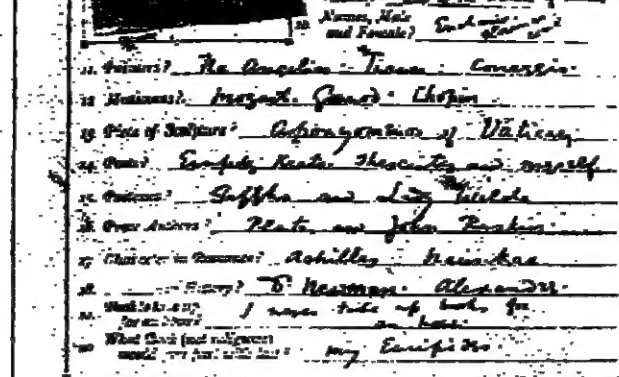 10. Names, Male and Female?
11. Painters? Fra Angelico. Titian. Correggio.
12 Musicians? Mozart. Gounod. Chopin
13. Piece of Sculpture? of Vatican
14. Poets? Euripides Keats. Theocritus and myself
15. Poetesses? Sappho and Lady Wilde
16. Prose Authors? Plato and John Ruskin.
17. Character in Romance? Achilles Nausikaa
18. History? Dr Newman. Alexander.
19. Book to take up for an hour? I never take up books for an hour.
20 What book (not religious) would you part with last? my Euripides.